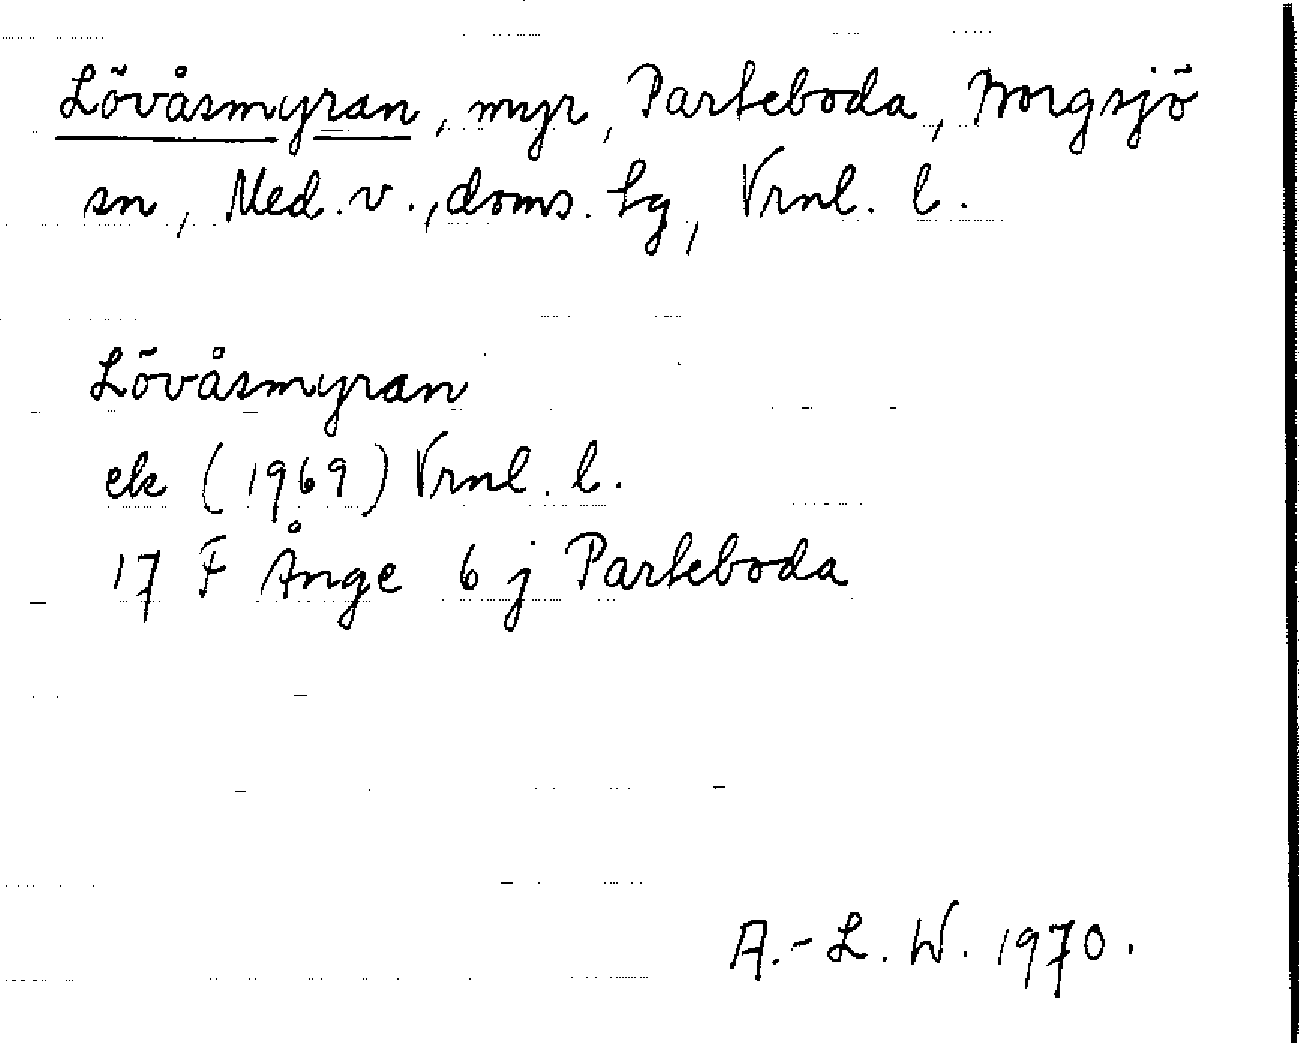 Lövåsmyran, myr, Parteboda, Borgsjö
sn, Med. v., doms. hg, Vrnl. l.
Lövåsmyran
ek (1969) Vrnl. l.
17 F Ånge 6 j Parteboda
A.-L. W. 1970.